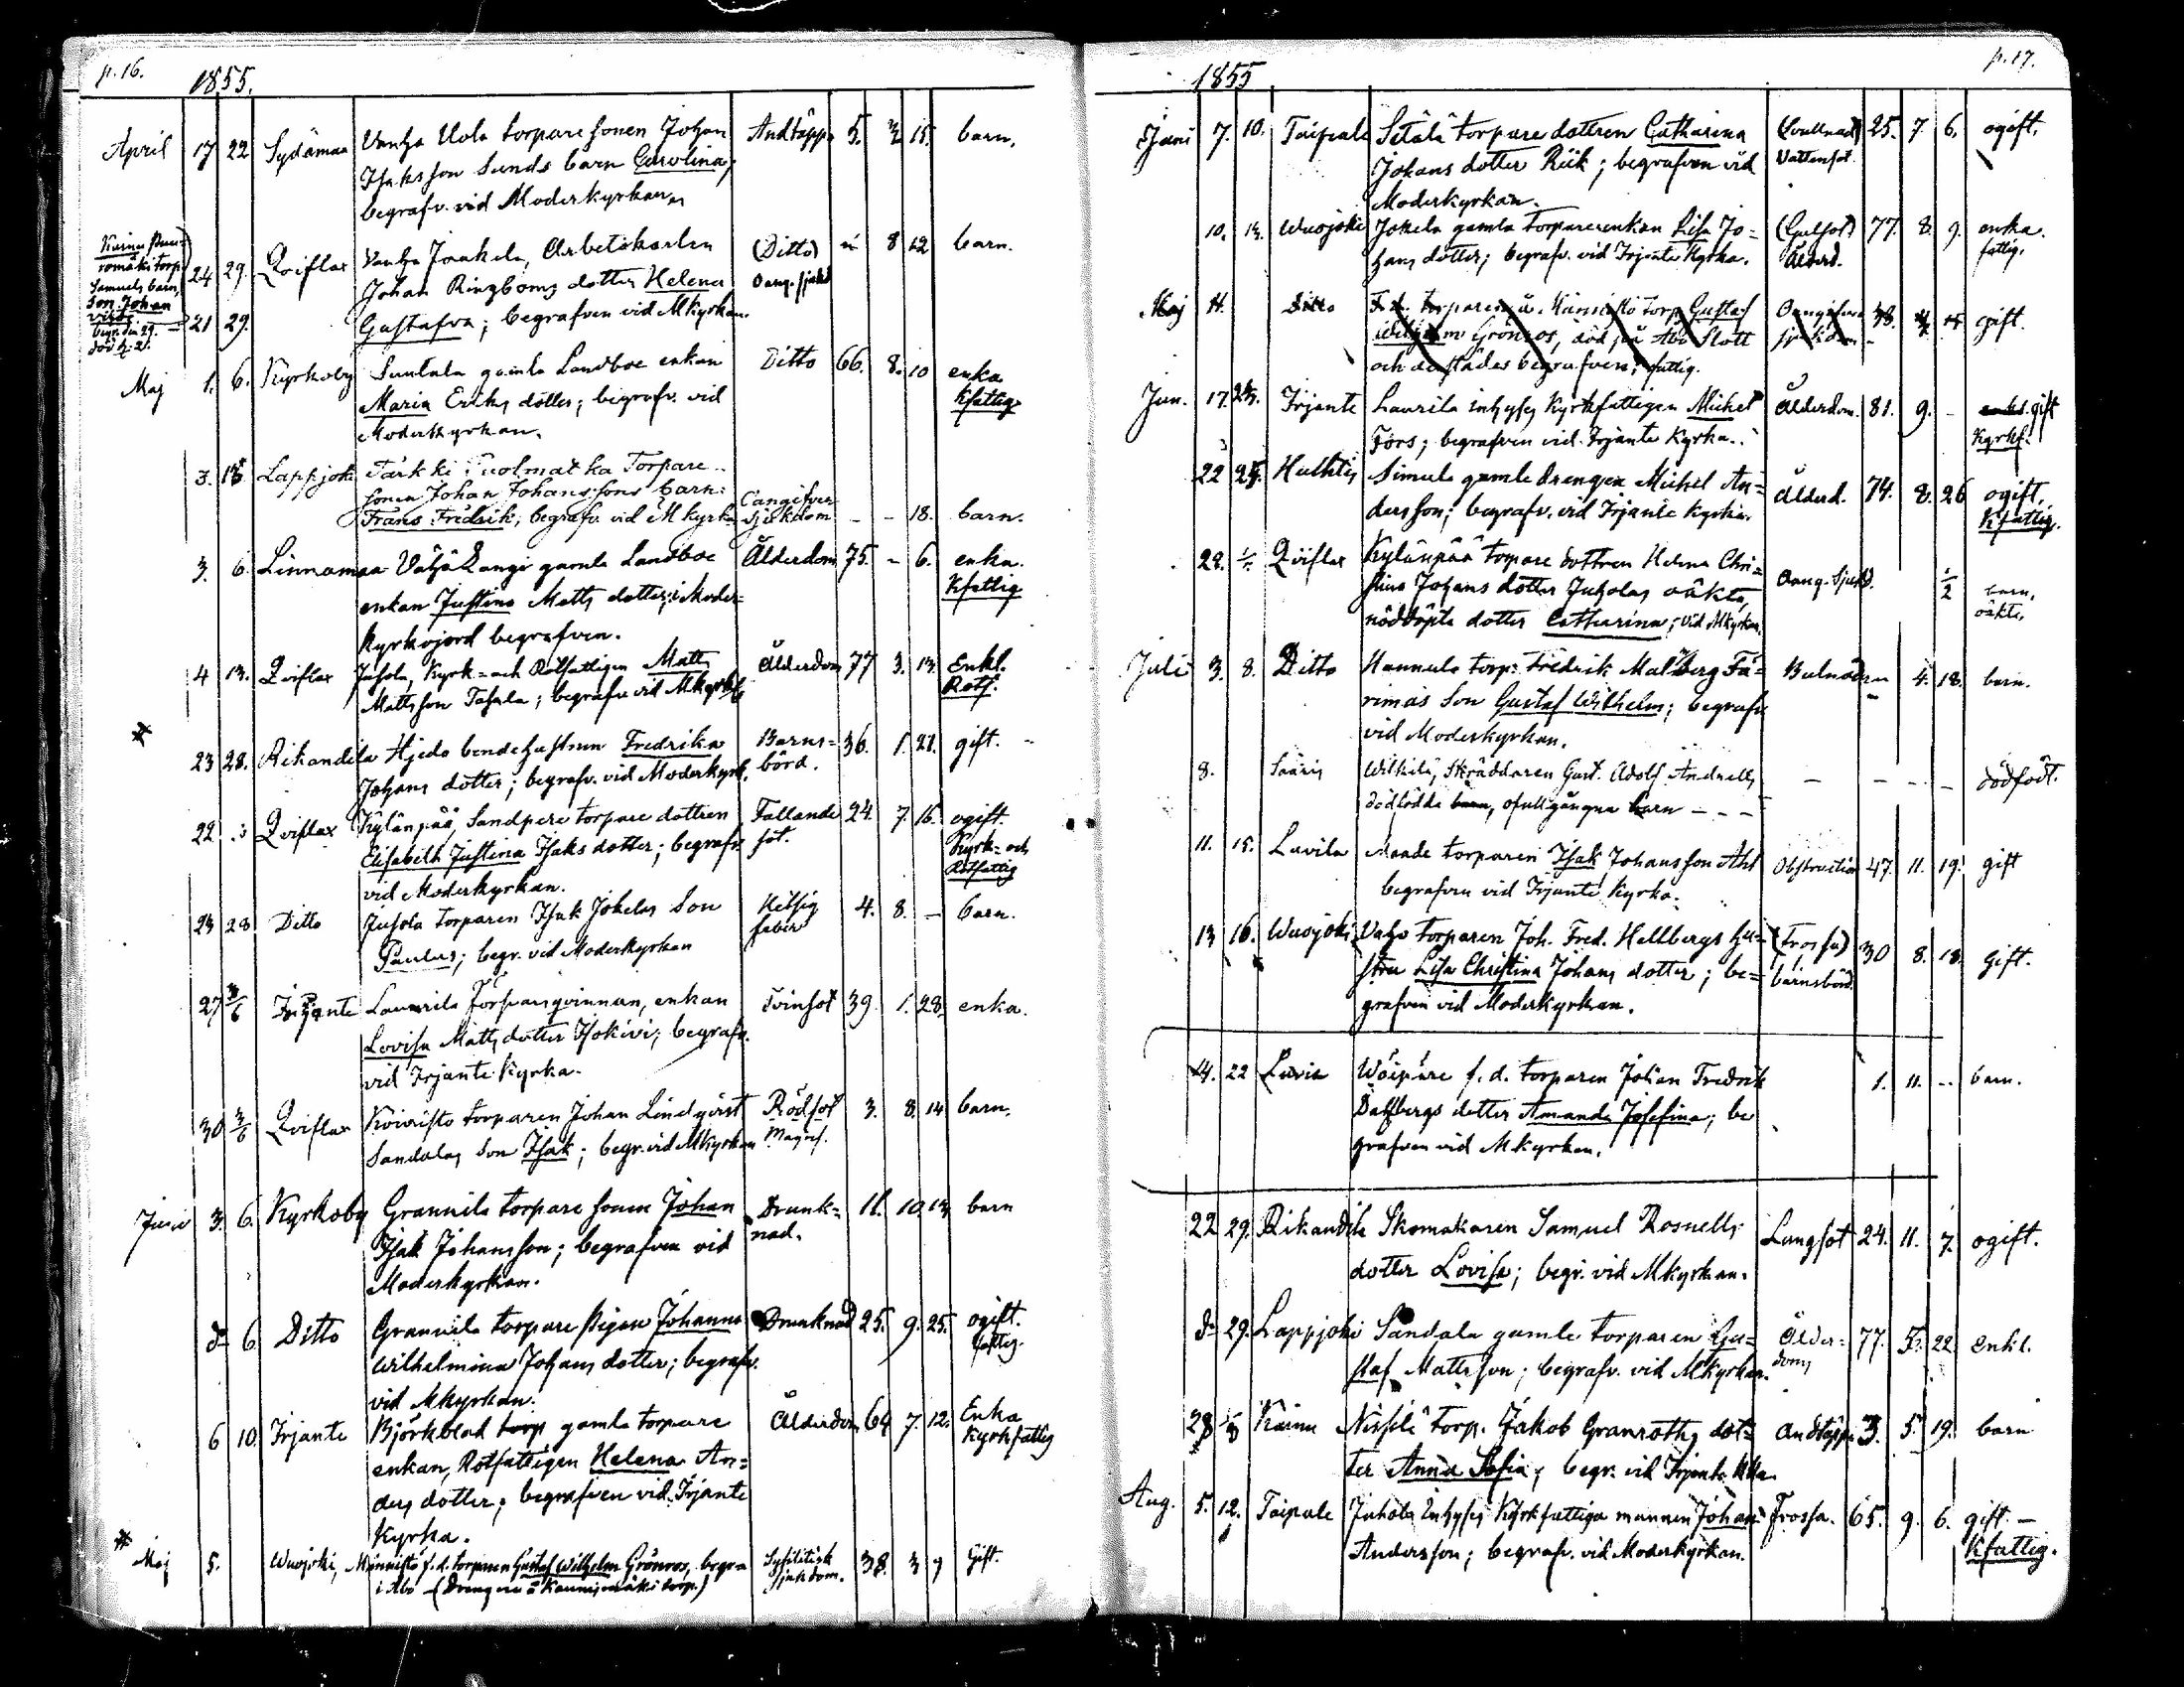 p. 16.
1855.
April 17 22 Sydämaa Vanha Uola torpare sonen Johan Andtäppa 5. 15. barn.
Isaksson Sunds barn Carolina;
begrafv. vid Moderkyrkan
romäki torp.
Samuels barn,
Son Johan
begr. den 29.
24 29. Qviflax Vanha Jaakola, Arbetskarlen (Ditto) 8 12 barn.
Johan Ringboms dotter Helena Oang. sjukd
21 29. Gustafva; begrafven vid Mkyrkan.
Maj 1. 6. Kyrkoby Suutala gamla Landboe enkan Ditto 66. 8. 10 enka
Maria Eriks dotter; begrafv. vid Kfattig
Moderkyrkan.
3. 13 Lappjoki Tarkki Torpare
sonen Johan Johanssons barn:
Frans Fredrik; begrafv. vid Mkyrka Oangifven sjukdom - - 18. barn.
3. 6. Linnamaa Vähä Langi gamla Landboe Ålderdom 75. - 6. enka.
enkan Justina Matts dotter; i Moder= Kfattig
kyrkojord begrafven.
4 13. Qviflax Juhola, Kyrk= och Rotfattigen Matts Ålderdom 77 3. 13. Enkl.
Mattsson Tahala; begrafv. vid Mkyrk Rotf.
23 28. Rikandila Hjedo bondehustrun Fredrika Barns= 36. 1. 21. gift.
Johans dotter; begrafv. vid Moderkyrk. börd.
22 Qviflax Kylänpää, Sandpere torpare dottren Fallande 24. 7. 16. ogift.
Elisabeth Justina Isaks dotter; begrafv. sot. Kyrk= och
vid Moderkyrkan. Rotfattig
23 28 Ditto Juhola torparen Isak Jokelas Son Hetsig 4. 8. - barn.
Paulus; begr. vid Moderkyrkan feber
27 3/6 Irjante Laurila Torparqvinnan, enkan Tvinsot 39. 1. 28. enka.
Lovisa Matts dotter Isokivi; begrafv.
vid Irjante Kyrka.
30 3/6 Qviflax Koivisto torparen Johan Lindqvist Rödsot 3. 8. 14 barn.
Sandalas Son Isak; begr. vid Mkyrkan
Juni 3. 6. Kyrkoby Grannila torpare sonen Johan Drunk= 11. 10. 13 barn
Isak Johansson; begrafven vid nad.
Moderkyrkan.
do 6 Ditto Grannila torpare pigan Johanna Drunknad 25. 9. 25. ogift.
Wilhelmina Johans dotter; begrafv. fattig.
vid Mkyrkan.
6 10. Irjante Björkblad gamla torpare Ålderdom 64 7. 12. Enka
enkan, Rotfattigen Helena An= Kyrkfattig
ders dotter; begrafven vid Irjante
Kyrka.
Maj 5. Wuojoki, Männistö f. d. torparen Gustaf Wilhelm Grönros, begra Syfilitisk 38. 3 9 Gift.
i Åbo (Drengen å Kaunismäki torp.) Sjukdom.
1855
p. 17.
Juni 7. 10. Taipale Setälä torpare dottren Catharina 25. 7. 6. ogift.
Johans dotter Riik; begrafven vid Vattensot.
Moderkyrkan.
10. 13. Wuojoki Jokela gamla torpareenkan Lisa Jo= (Gulsot) 77. 8. 9. enka.
hans dotter; begrafv. vid Irjante Kyrka. Ålderd. fattig.
Maj 11. Ditto F. d. torparen å Männistö torp Gustaf Oangifven 38. gift.
Wilhelm Grönros, död på Åbo Slott sjukdom
och derstädes begrafven; fattig.
Jun. 17. 24. Irjante Laurila inhyses Kyrkfattigen Michel Ålderdom. 81. 9. - gift
Fors; begrafven vid Irjante Kyrka. Kyrkf.
22 25. Huhtis Simula gamle drengen Michel An= Ålderd. 74. 8. 26 ogift.
dersson; begrafv. vid Irjante Kyrka. Kfattig.
29. Qviflax Kylänpää torpare dottren Helena Chri= Oang. Sjukd. 1/2 barn,
stina Johans dotter Juholas oäkta, oäkta.
nöddöpta dotter Catharina; vid Mkyrkan.
Juli 3. 8. Ditto Hannula torp. Fredrik Malmberg Fa= Bulnader 4. 18. barn.
rimas Son Gustaf Wilhelm; begrafv.
vid Moderkyrkan.
8. Sääris Wilkilä, Skräddaren Gust. Adolf Andells - - - dödfödt.
dödfödda ofullgångna barn - - -
11. 15. Luvila Maade torparen Isak Johansson Ahl Obstruction 47. 11. 19. gift
begrafven vid Irjante kyrka.
13 16. Wuojoki Vaho torparen Joh. Fred. Hellbergs hu= (Frossa) 30 8. 18. Gift.
stru Lisa Christina Johans dotter; be= barnsbörd
grafven vid Moderkyrkan.
14. 22 Luvia f. d. torparen Johan Fredrik 1. 11. -- barn.
Dahlbergs dotter Amanda Josefina; be
grafven vid Mkyrkan.
22 29. Rikandila Skomakaren Samuel Rosnells Lungsot 24. 11. 7. ogift.
dotter Lovisa; begr. vid Mkyrkan.
do 29. Lappjoki Sandala gamle torparen Gu= Ålder= 77. 5. 22 enkl.
staf Mattsson; begrafv. vid Mkyrkan. dom
28 Kainu Nissilä torp. Jakob Granroths dot= Andtäppa 3. 5. 19. barn
ter Anna Sofia; begr. vid Irjante Kka.
Aug. 5. 12. Taipale Juhola Inhyses Kyrkfattige mannen Johan Frossa. 65. 9. 6. gift. -
Andersson; begrafv. vid Moderkyrkan. Kfattig.